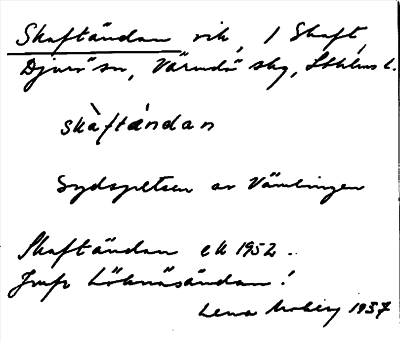 Skaftändan vik, i Skaft,
Djurö sn, Värmdö skg, Sthlms l.
skàftándan
Sydspetsen av Vämlingen
Skaftändan ek 1952.
Jmfr Löknäsändan!
Lena Moberg 1937